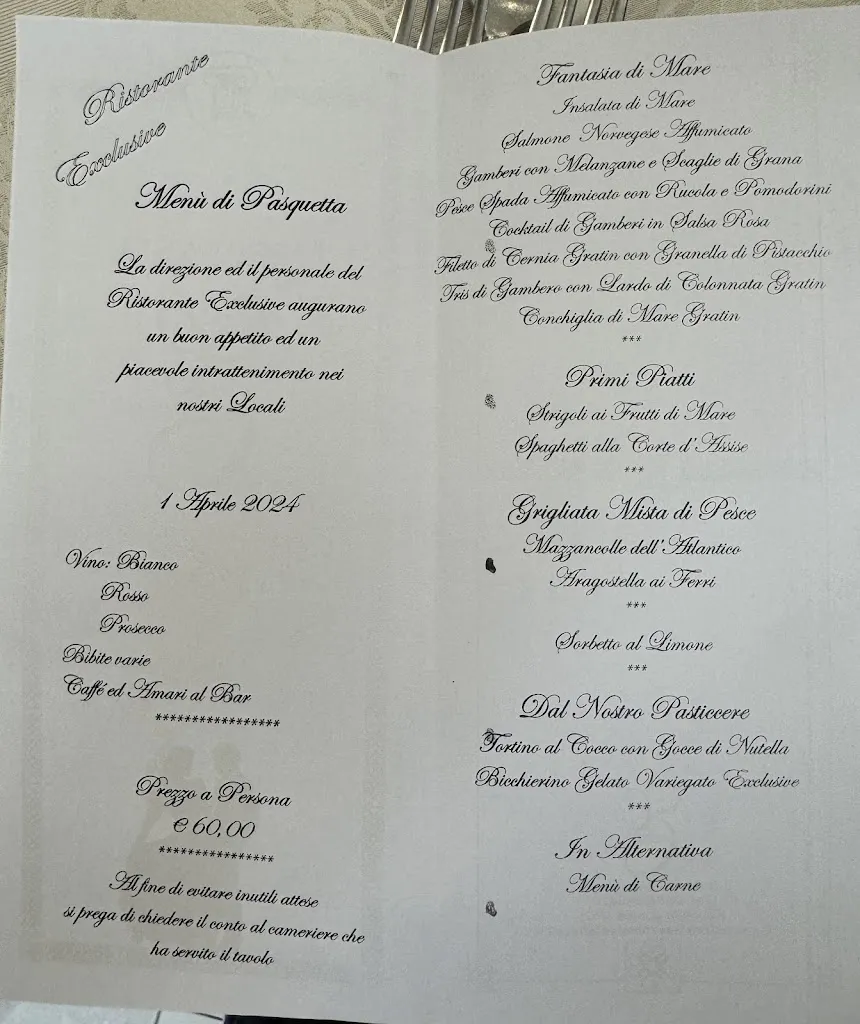 Ristorante
Exclusive
Menù di Pasquetta
La direzione ed il personale del
Ristorante Exclusive augurano
un buon appetito ed un
piacevole intrattenimento nei
nostri Locali
1 Aprile 2024
Vino: Bianco
Rosso
Prosecco
Bibite varie
Caffé ed Amari al Bar
*****************
Prezzo a Persona
€ 60,00
****************
Al fine di evitare inutili attese
si prega di chiedere il conto al cameriere che
ha servito il tavolo
Fantasia di Mare
Insalata di Mare
Salmone Norvegese Affumicato
Gamberi con Melanzane e Scaglie di Grana
Pesce Spada Affumicato con Rucola e Pomodorini
Cocktail di Gamberi in Salsa Rosa
Filetto di Cernia Gratin con Granella di Pistacchio
Tris di Gambero con Lardo di Colonnata Gratin
Conchiglia di Mare Gratin
***
Primi Piatti
Strigoli ai Frutti di Mare
Spaghetti alla Corte d'Assise
***
Grigliata Mista di Pesce
Mazzancolle dell'Atlantico
Aragostella ai Ferri
***
Sorbetto al Limone
***
Dal Nostro Pasticcere
Tortino al Cocco con Gocce di Nutella
Bicchierino Gelato Variegato Exclusive
***
In Alternativa
Menù di Carne